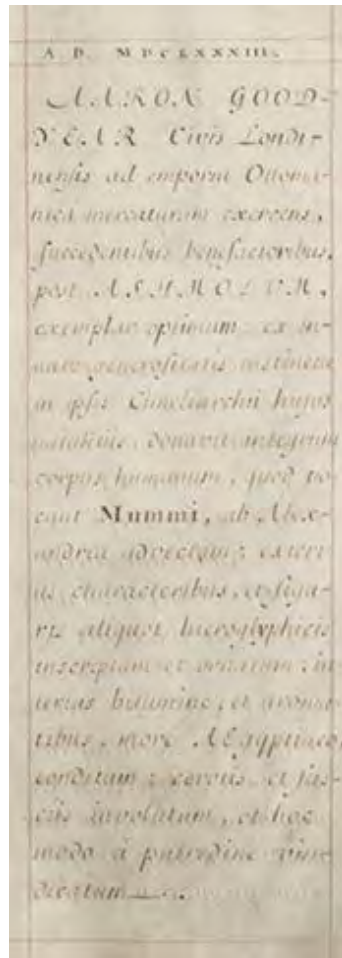 A. D. MDCLXXXIII.
AARON GOOD-
YEAR Civis Londi-
nensis ad emporia Ottoma-
nica mercaturam exercens,
succedentibus benefactoribus,
post ASHMOLUM,
exemplar optimum ex in-
nato generositatis
in ipsis Cimeliarchii hujus
natalitiis, donavit integrum
corpus humanum, quod vo-
cant Mummi, ab Alex-
andria advectum; exteri-
us characteribus, et figu-
ris aliquot hieroglyphicis
inscriptam et ornatum, in-
terius bitumine, et aroma-
tibus, more AEgyptiaco,
conditam; et fas-
ciis involutum, et hoc
modo à putredine vin-
dicatum